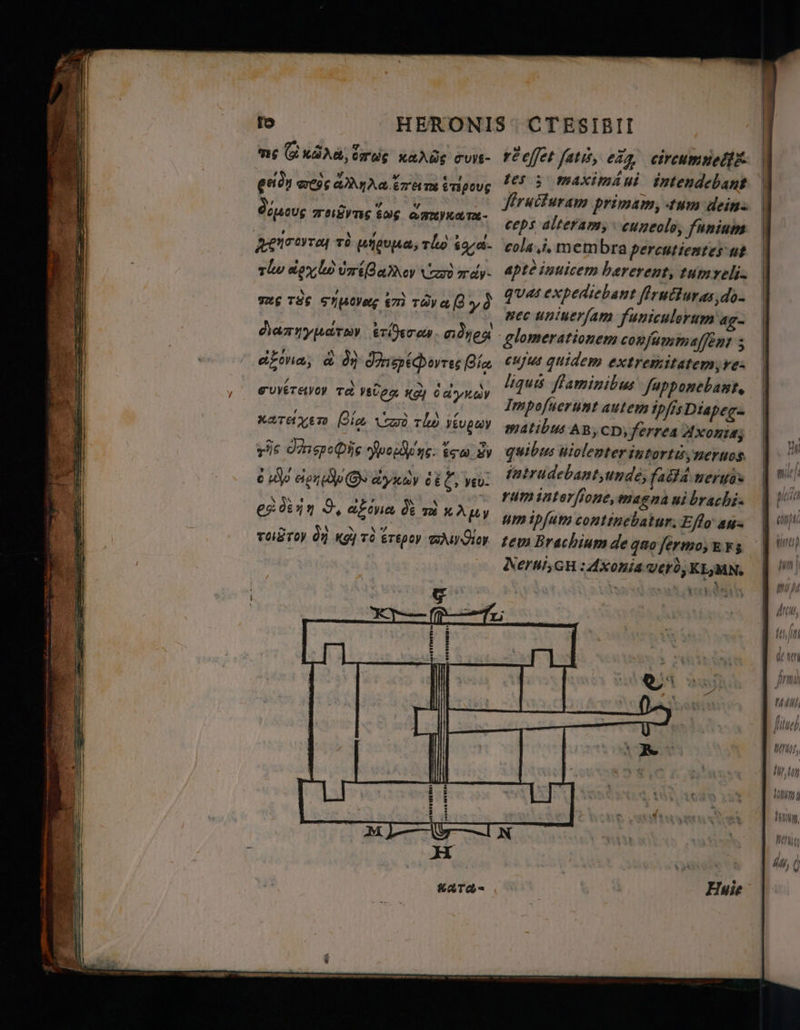 10 HERONIS CTESIBII
τες τὰ κῶλα, ὅπως καλῶς συνε-
ρείδῃ πρὸς ἄλληλα. ἔπειτα ἑτέρους
δόμους ποιοῦντες ἕως ἅπαν κατα-
χρήσονται τὸ μήρυμα, τὴν ἐσχά-
την ἀρχὴν ὑπέβαλλον ὑπὸ πάν-
τας τοὺς στήμονας ἐπὶ τῶν α β γ δ
διαπηγμάτων ἐτίθεσαν σιδηρᾶ
ἀξόνια, ἃ δὴ ἐπιστρέφοντες βίᾳ
συνέτεινον τὰ νεῦρα καὶ ὁ ἀγκὼν
κατείχετο βίᾳ ὑπὸ τῶν νεύρων
τῆς ἐπιστροφῆς γενομένης. ἔστω οὖν
ὁ μὲν εἰρημένος ἀγκὼν ὁ ε ζ, νευ-
ρὰ δὲ ἡ η θ, ἀξόνια δὲ τὰ κλ μν
τοιοῦτον δὴ καὶ τὸ ἕτερον πλινθίον
rẽ esset satis, eáq, circumuectã-
tes ; maximá ui intendebant
structuram primam, tum dein-
ceps alteram, cuneolo, funium
cola, i, membra percutientes ut
aptè inuicem hærerent, tum reli-
quas expediebant structuras, do-
nec uniuersam funiculorum ag-
glomerationem consummassent ;
cujus quidem extremitatem, re-
liquis staminibus supponebant.
Imposuerunt autem ipsis Diapeg-
matibus AB, CD, ferrea Axonia;
quibus uiolenter intortis, neruos
intrudebant, unde, factá neruo-
rum intorsione, magna ui brachi-
um ipsum continebatur. Esto au-
tem Brachium de quo sermo, EFʒ
Nerui, GH : Axonia verò, KL, MN.
G
K L
Q
R
M N
H
κατα- Huic